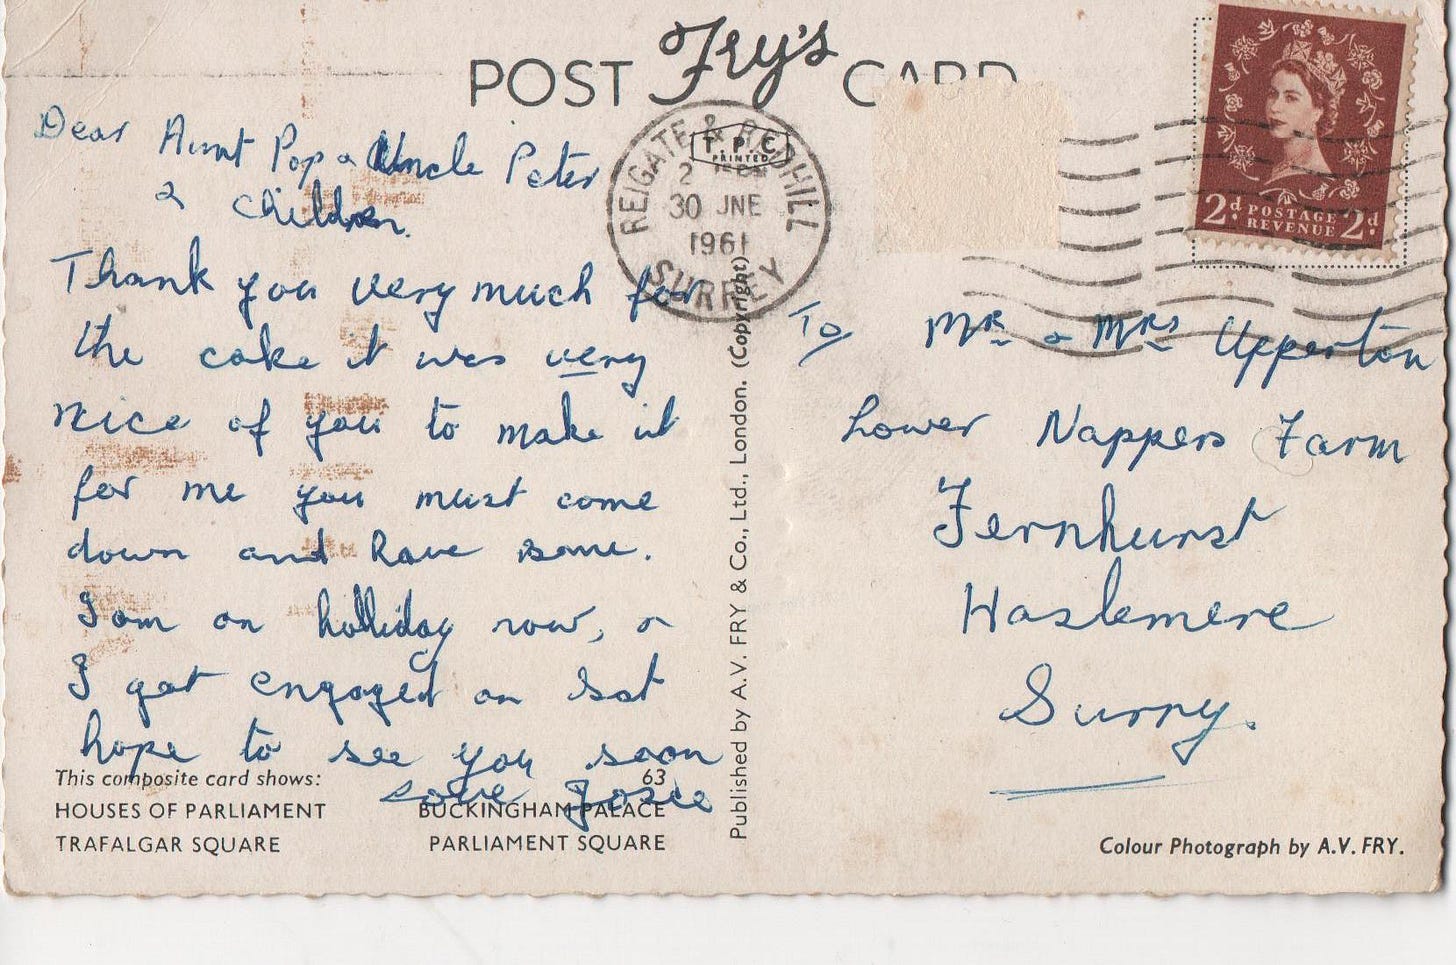 POST Fry's CARD
T.P.C
PRINTED
REIGATE & REDHILL
2
30 JNE
1961
SURREY
2d POSTAGE 2d
REVENUE
Dear Aunt Pop & Uncle Peter
& children.
Thank you very much for
the cake it was very
nice of you to make it
for me you must come
down and have some.
I am on holliday now, &
I got engaged on Sat
hope to see you soon
love Josie
To Mr & Mrs Upperton
Lower Nappers Farm
Fernhurst
Haslemere
Surry.
Published by A.V. FRY & Co., Ltd., London. (Copyright)
This composite card shows: 63
HOUSES OF PARLIAMENT BUCKINGHAM PALACE
TRAFALGAR SQUARE PARLIAMENT SQUARE
Colour Photograph by A.V. FRY.